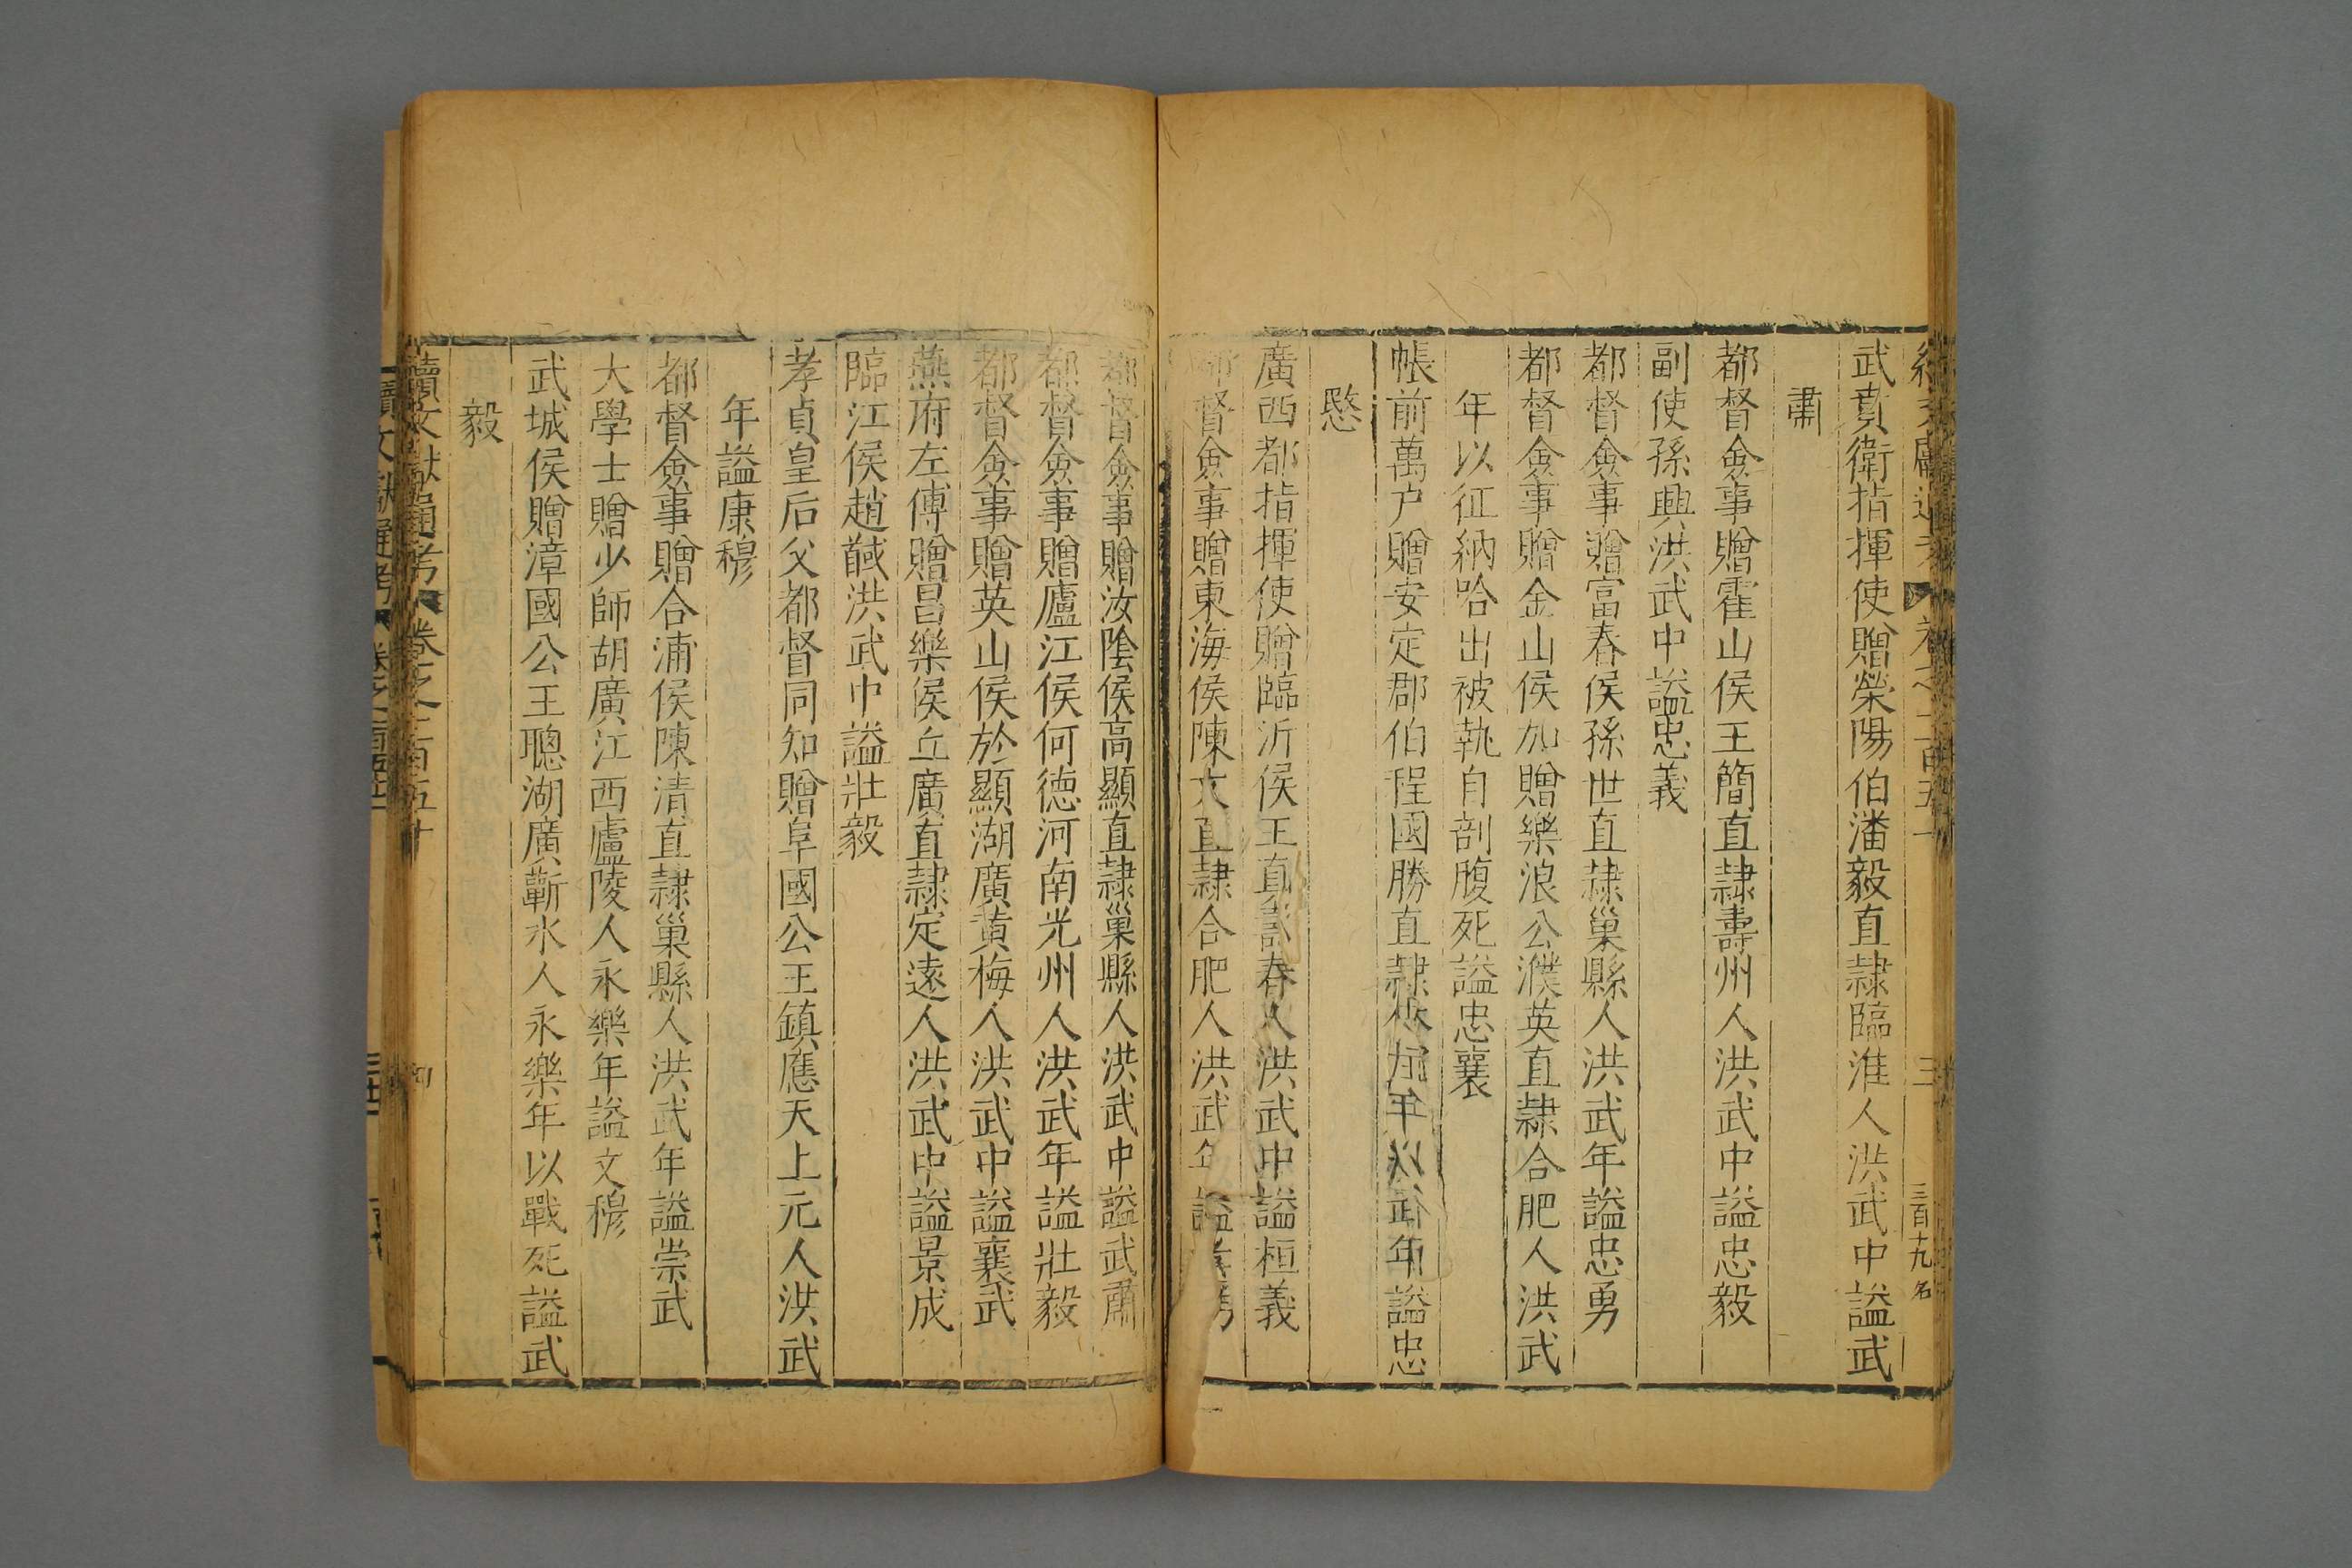 武賁衛指揮使贈滎陽伯潘毅直隷臨淮人洪武中謚武
肅
都督僉事贈霍山侯王簡直隷壽州人洪武中謚忠毅
副使孫興洪武中謚忠義
都督僉事贈富春侯孫世直隷巢縣人洪武年謚忠勇
都督僉事贈金山侯加贈樂浪公濮英直隷合肥人洪武
年以征納哈出被執自剖腹死謚忠襄
帳前萬户贈安定郡伯程國勝直隷年謚忠
愍
廣西都指揮使贈臨沂侯王真春人洪武中謚桓義
督僉事贈東海侯陳文直隷合肥人洪武年謚孝勇
都督僉事贈汝陰侯高顯直隷巢縣人洪武中謚武肅
都督僉事贈廬江侯何德河南光州人洪武年謚壯毅
都督僉事贈英山侯於顯湖廣黄梅人洪武中謚襄武
燕府左傅贈昌樂侯丘廣直隷定遠人洪武中謚景成
臨江侯趙馘洪武中謚壯毅
孝貞皇后父都督同知贈阜國公王鎮應天上元人洪武
年謚康穆
都督僉事贈合浦侯陳清直隷巢縣人洪武年謚崇武
大學士贈少師胡廣江西廬陵人永樂年謚文穆
武城侯贈漳國公王聰湖廣蘄水人永樂年以戰死謚武
毅
續文獻通考 卷之二百五十